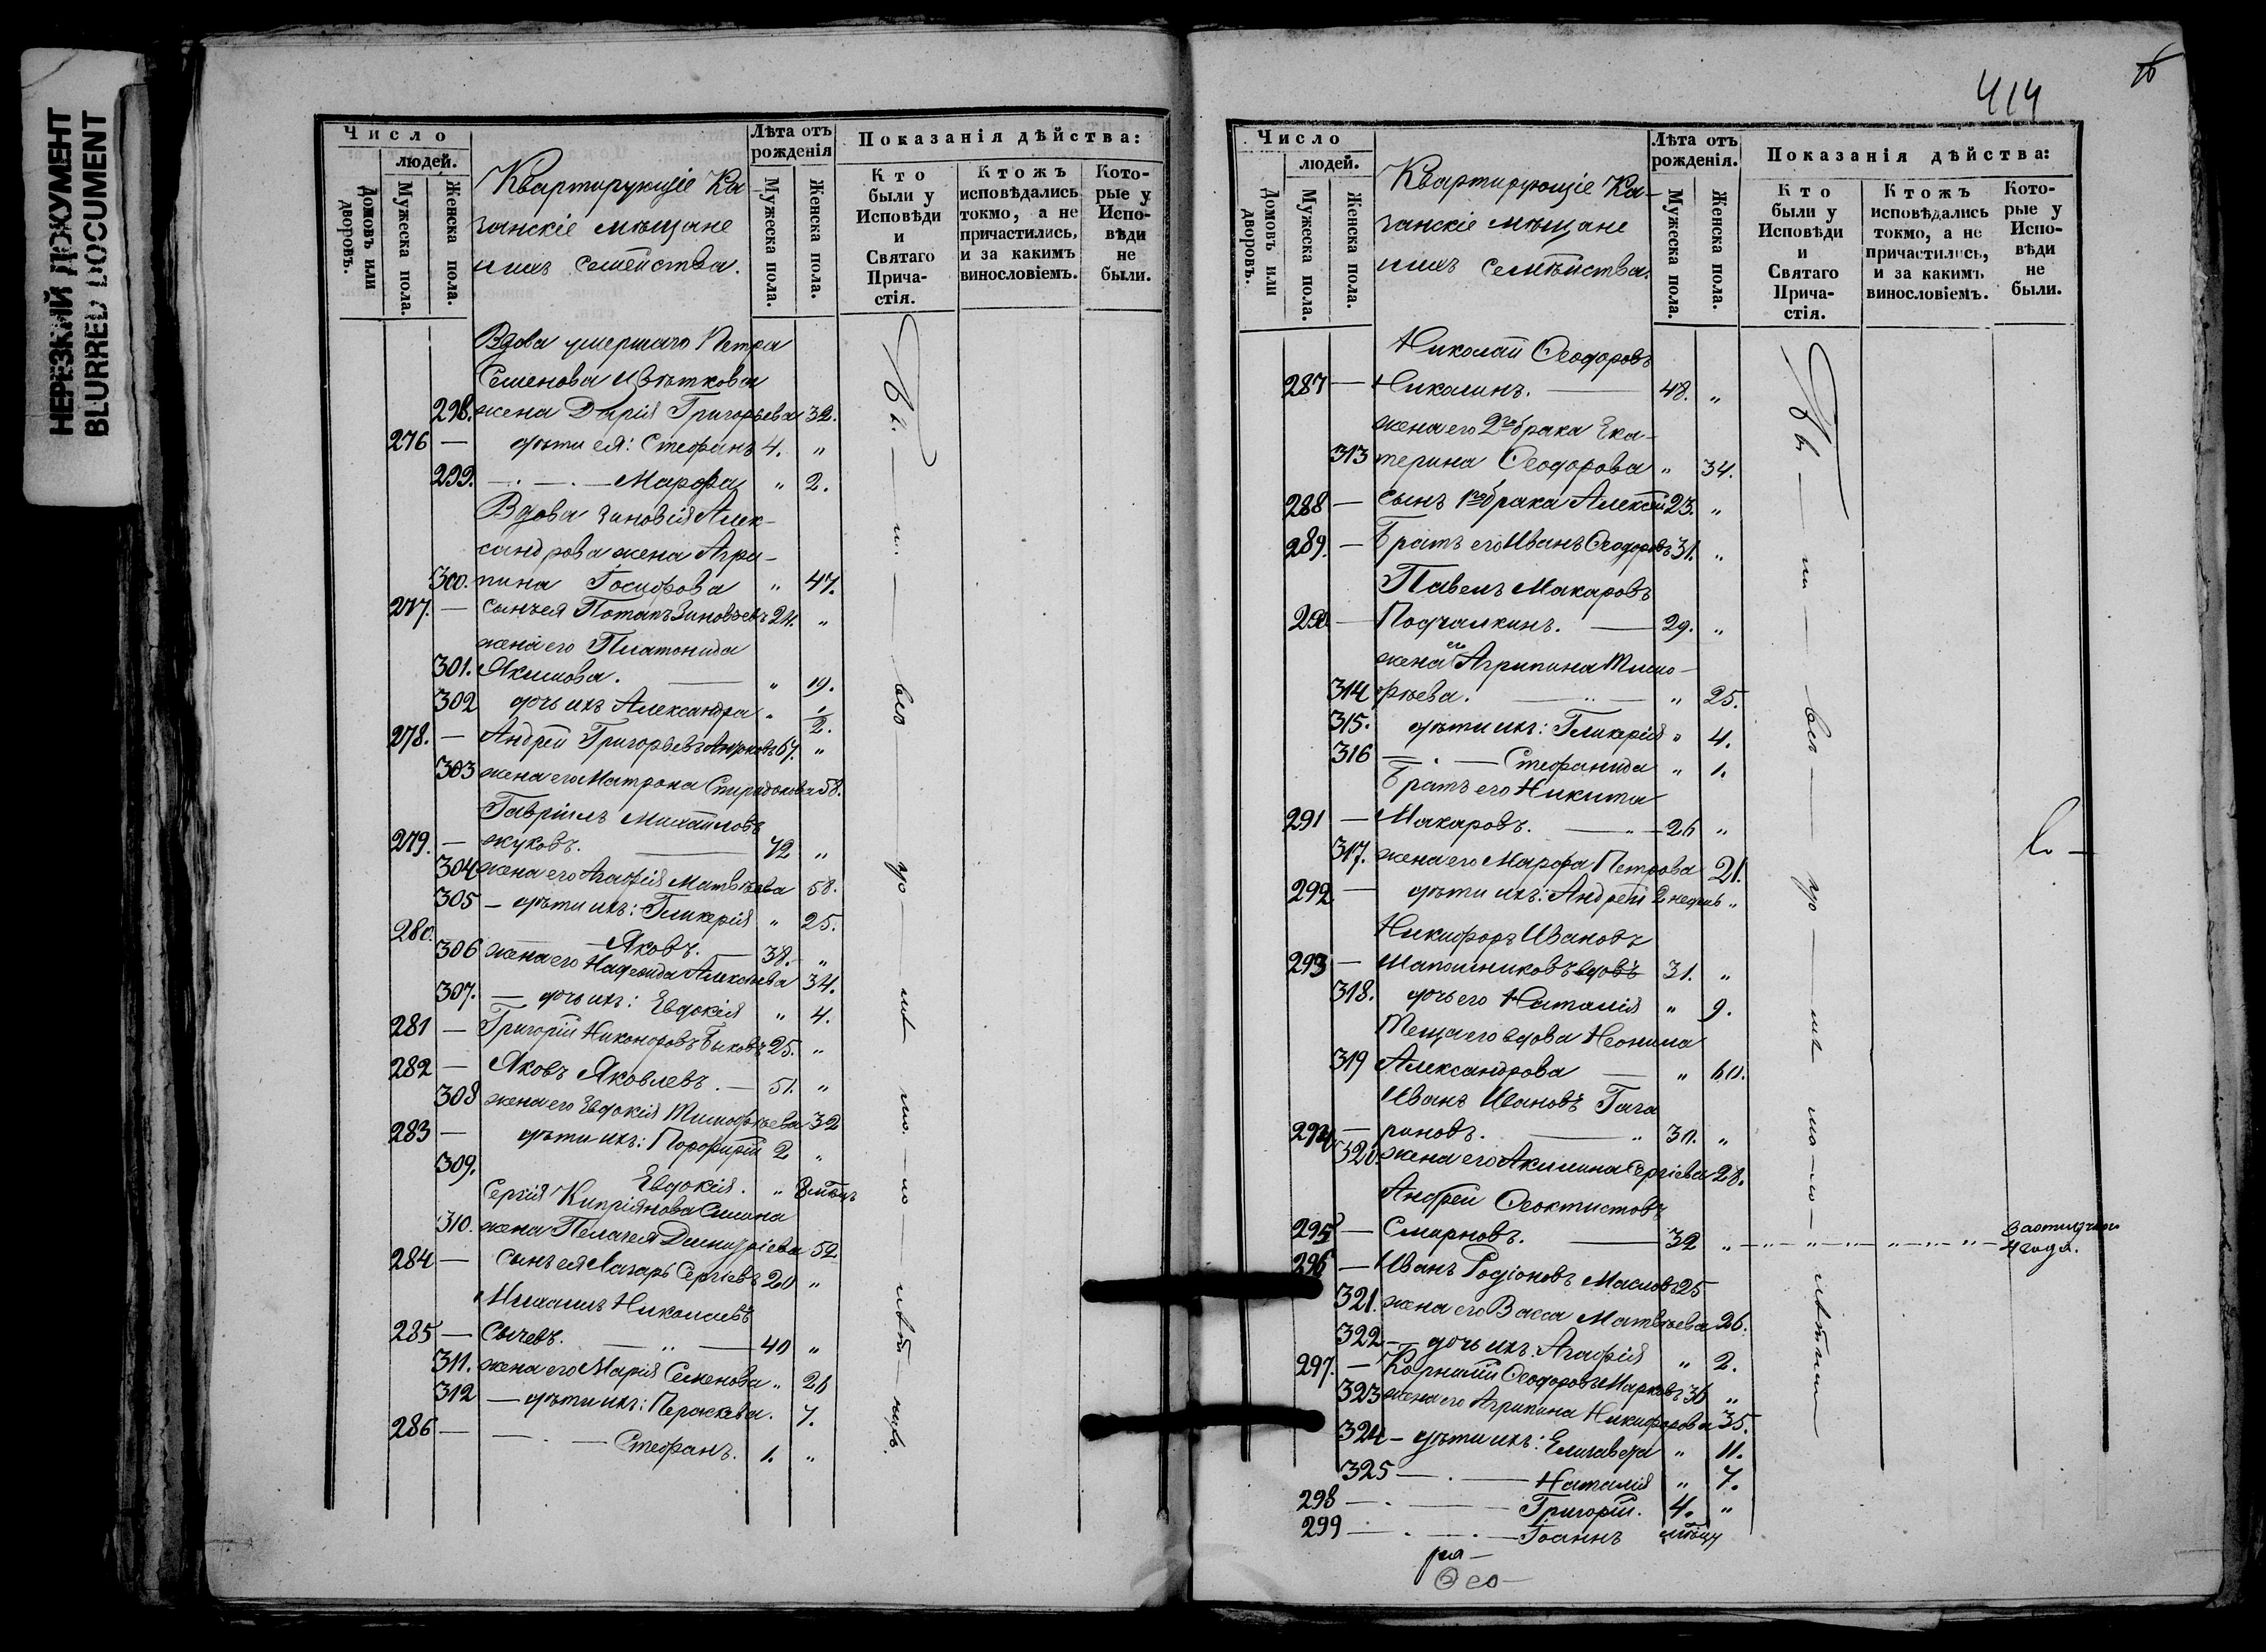 НЕРЕЗКИЙ ДОКУМЕНТ
BLURRED DOCUMENT
Число
людей.
Домовъ или дворовъ.
Мужеска пола.
Женска пола.
Квартирующіе Ка-
занскіе мѣщане
и ихъ семейства.
Лѣта отъ рожденія
Мужеска пола.
Женска пола.
Показанія дѣйства:
Кто были у Исповѣди и Святаго Прича-стія.
Ктожъ исповѣдались токмо, а не причастились, и за какимъ винословіемъ.
Кото-рые у Испо-вѣди не были.
Вдова умершаго Петра
Семенова Цвѣткова
298. жена Дарія Григорьева 32.
276 — дѣти ея: Стефанъ 4. "
299. — . — . — Марѳа " 2.
Вдова Зиновія Алек-
сандрова жена Агри-
300. пина Іосифова " 47.
277. — сынъ ея Потапъ Зиновьевъ 24. "
жена его Платонида
301. Якимова. — " 19.
302 дочь ихъ Александра " 1/2.
278. — Андрей Григорьевъ 67. "
303 жена его Матрона Спиридонова 58.
Гавріилъ Михайловъ
279. — Жуковъ. — 72 "
304 жена его Агафія Матвѣева 58.
305 — дѣти ихъ: Гликерія " 25.
280. Яковъ. — 38. "
306 жена его Надежда Алексѣева 34.
307. — дочь ихъ: Евдокія " 4.
281 — Григорій Никоноровъ Быковъ 25. "
282 — Яковъ Яковлевъ. — 51. "
308 жена его Евдокія Тимофѣева 32
283 — дѣти ихъ: Порфирій 2 "
309. Евдокія. " 8 мѣсц.
Сергія Кипріянова Симона
310. жена Пелагея Димитріева 52
284 — сынъ ея Лазарь Сергіевъ 20 "
Михаилъ Николаевъ
285 — Сычевъ. — " — 40 "
311. жена его Марія Семенова " 26
312 — дѣти ихъ: Параскева. 7.
286 — — . — Стефанъ. 1. "
414
Число
людей.
Домовъ или дворовъ.
Мужеска пола.
Женска пола.
Квартирующіе Ка-
занскіе мѣщане
и ихъ семѣйства.
Лѣта отъ рожденія.
Мужеска пола.
Женска пола.
Показанія дѣйства:
Кто были у Исповѣди и Святаго Прича-стія.
Ктожъ исповѣдались токмо, а не причастились, и за какимъ винословіемъ.
Кото-рые у Испо-вѣди не были.
Николай Ѳеодоровъ
287 — Никалинъ. — 48. "
жена его 2го брака Ека-
313 терина Ѳеодорова " 34.
288 — сынъ 1го брака Алексѣй 23. "
289. — Братъ его Иванъ Ѳеодоровъ 31. "
Павелъ Макаровъ
290 — Подчалкинъ. — 29. "
жена его Агрипина Тимо-
314 ѳѣева. — " 25.
315. дѣти ихъ: Гликерія " 4.
316 — . — Стефанида " 1.
Братъ его Никита
291 — Макаровъ. — " — 26 "
317. жена его Марѳа Петрова 21.
292 — дѣти ихъ: Андрей 2 недѣль "
Никифоръ Ивановъ
293 — Шапошниковъ вдовъ 31. "
318. дочь его Наталія " 9.
Теща его вдова Неонила
319 Александрова — " 60.
Иванъ Ивановъ Гага
294 — риновъ. — " 30. "
320. жена его Акилина Сергіева 28.
Андрей Ѳеоктистовъ
295 — Смирновъ. — 32 "
За отлучкою 4 года.
296 — Иванъ Родіоновъ Масловъ 25
321. жена его Васса Матвѣева 26.
322 — дочь ихъ. Агафія " 2.
297. — Корнилій Ѳеодоровъ Марковъ 36 "
323 жена его Агрипина Никифорова 35.
324 — дѣти ихъ: Елизавета " 11.
325 — . — Наталія " 7.
298 — . — Григорій. 4. "
299 — . — . — Іоаннъ
Ѳео-